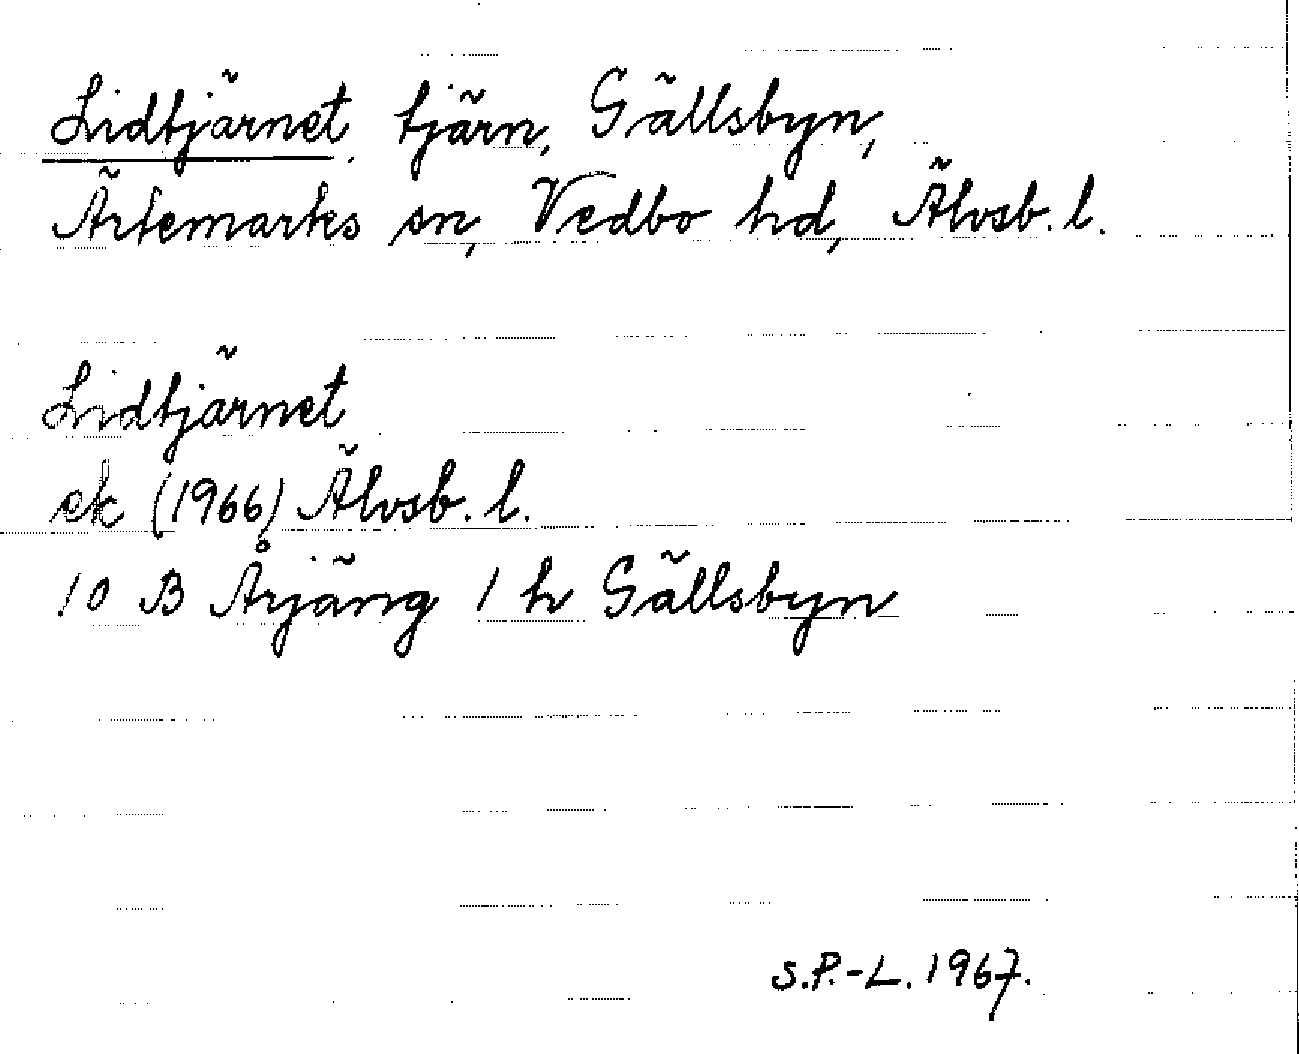 Lidtjärnet, tjärn, Gällsbyn,
Ärtemarks sn, Vedbo hd, Älvsb. l.
Lidtjärnet
ek (1966) Älvsb. l.
10 B Årjäng 1 h Gällsbyn
S.P.-L. 1967.